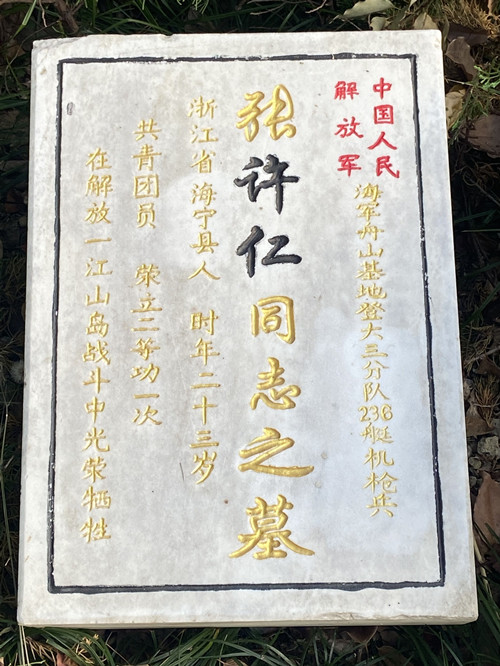 中国人民
解放军
海军舟山基地登大三分队236艇机枪兵
张许仁同志之墓
浙江省海宁县人 时年二十三岁
共青团员 荣立二等功一次
在解放一江山岛战斗中光荣牺牲